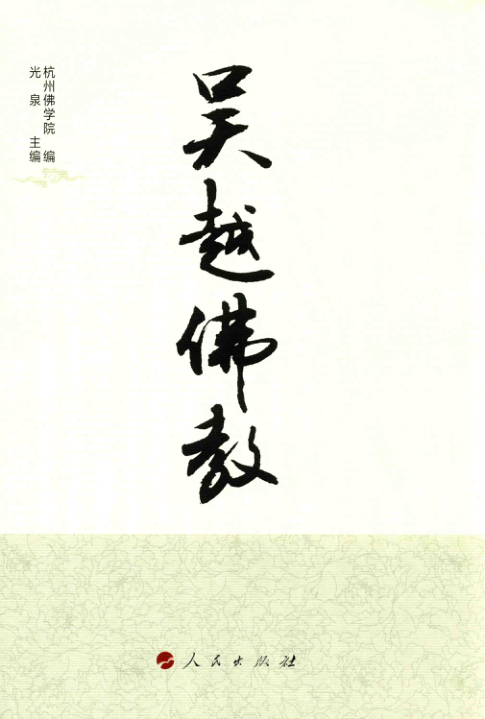 杭州佛学院 编
光 泉 主编
吴越佛教
人民出版社